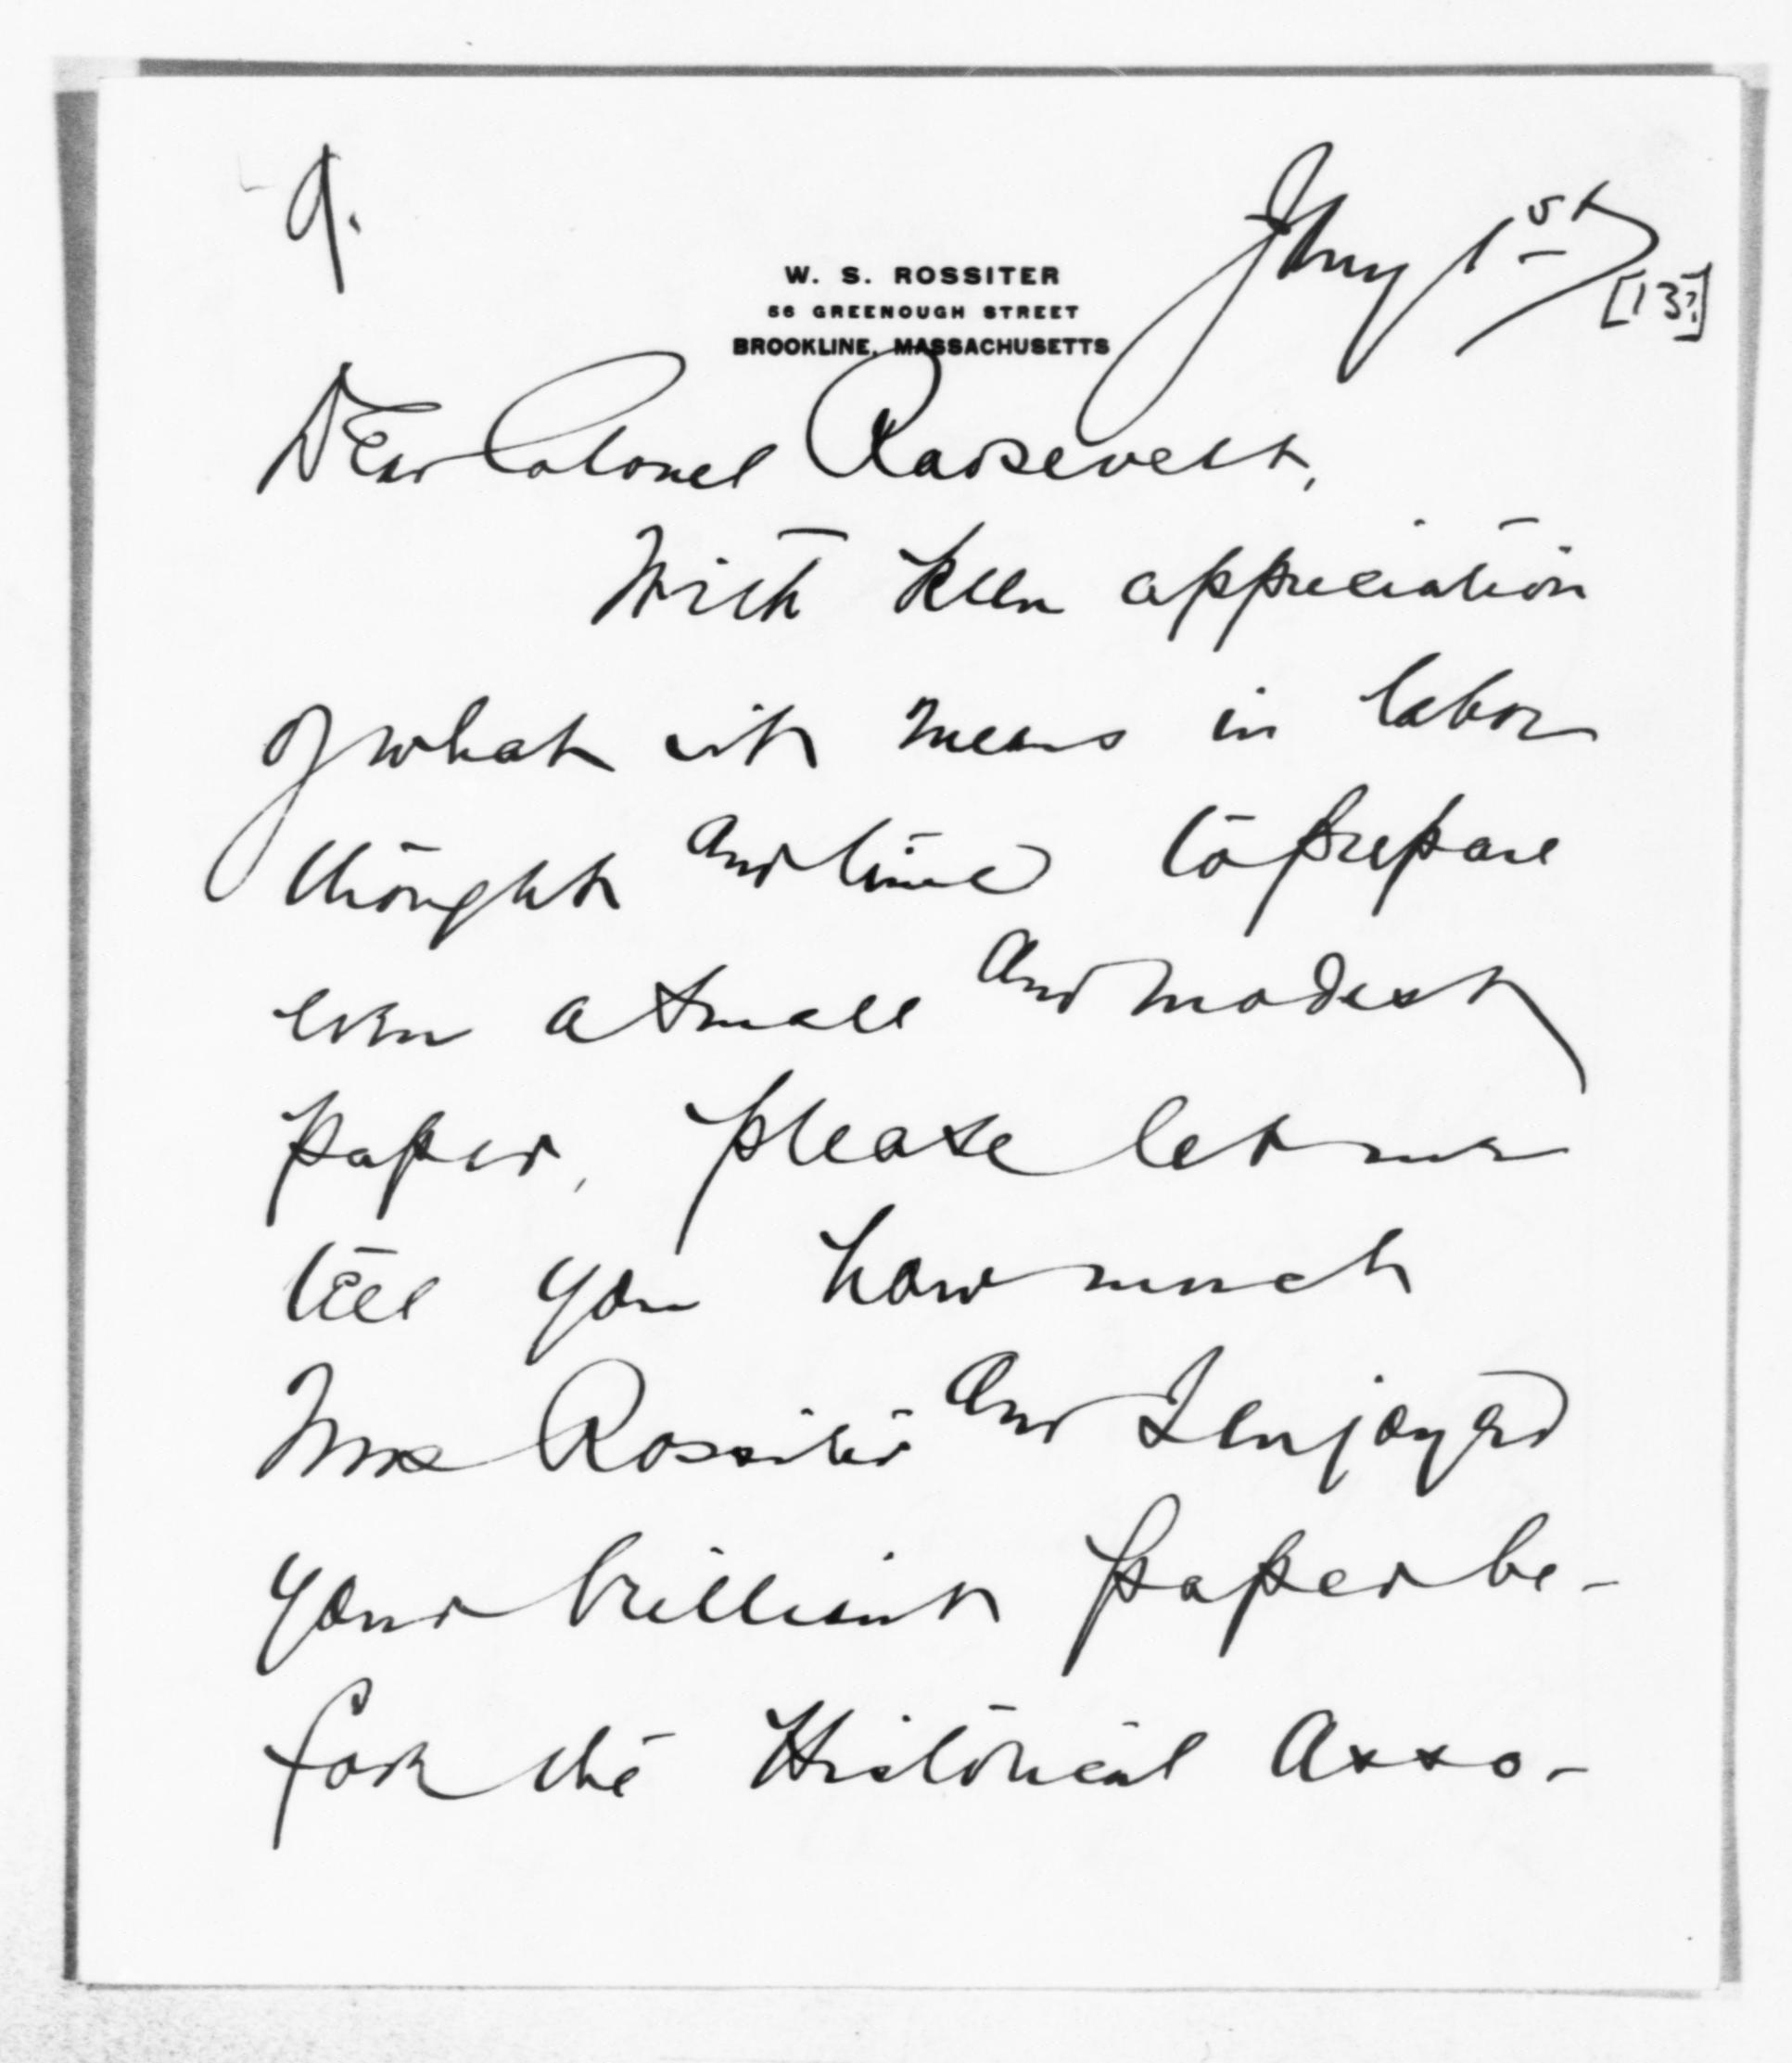 a.
Jany 1st
[13?]
W. S. ROSSITER
56 GREENOUGH STREET
BROOKLINE, MASSACHUSETTS
Dear Colonel Roosevelt,
With keen appreciation
of what it means in labor
thought and time to prepare
even a small and modest
paper, please let me
tell you how much
Mrs Rossiter and I enjoyed
your brilliant paper be-
fore the Historical Asso-